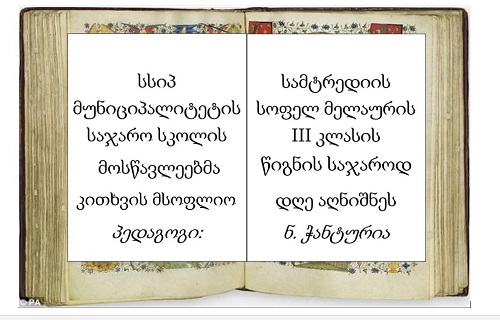 სსიპ სამტრედიის
მუნიციპალიტეტის სოფელ მელაურის
საჯარო სკოლის III კლასის
მოსწავლეებმა წიგნის საჯაროდ
კითხვის მსოფლიო დღე აღნიშნეს
პედაგოგი: ნ. ჭანტურია
© PA